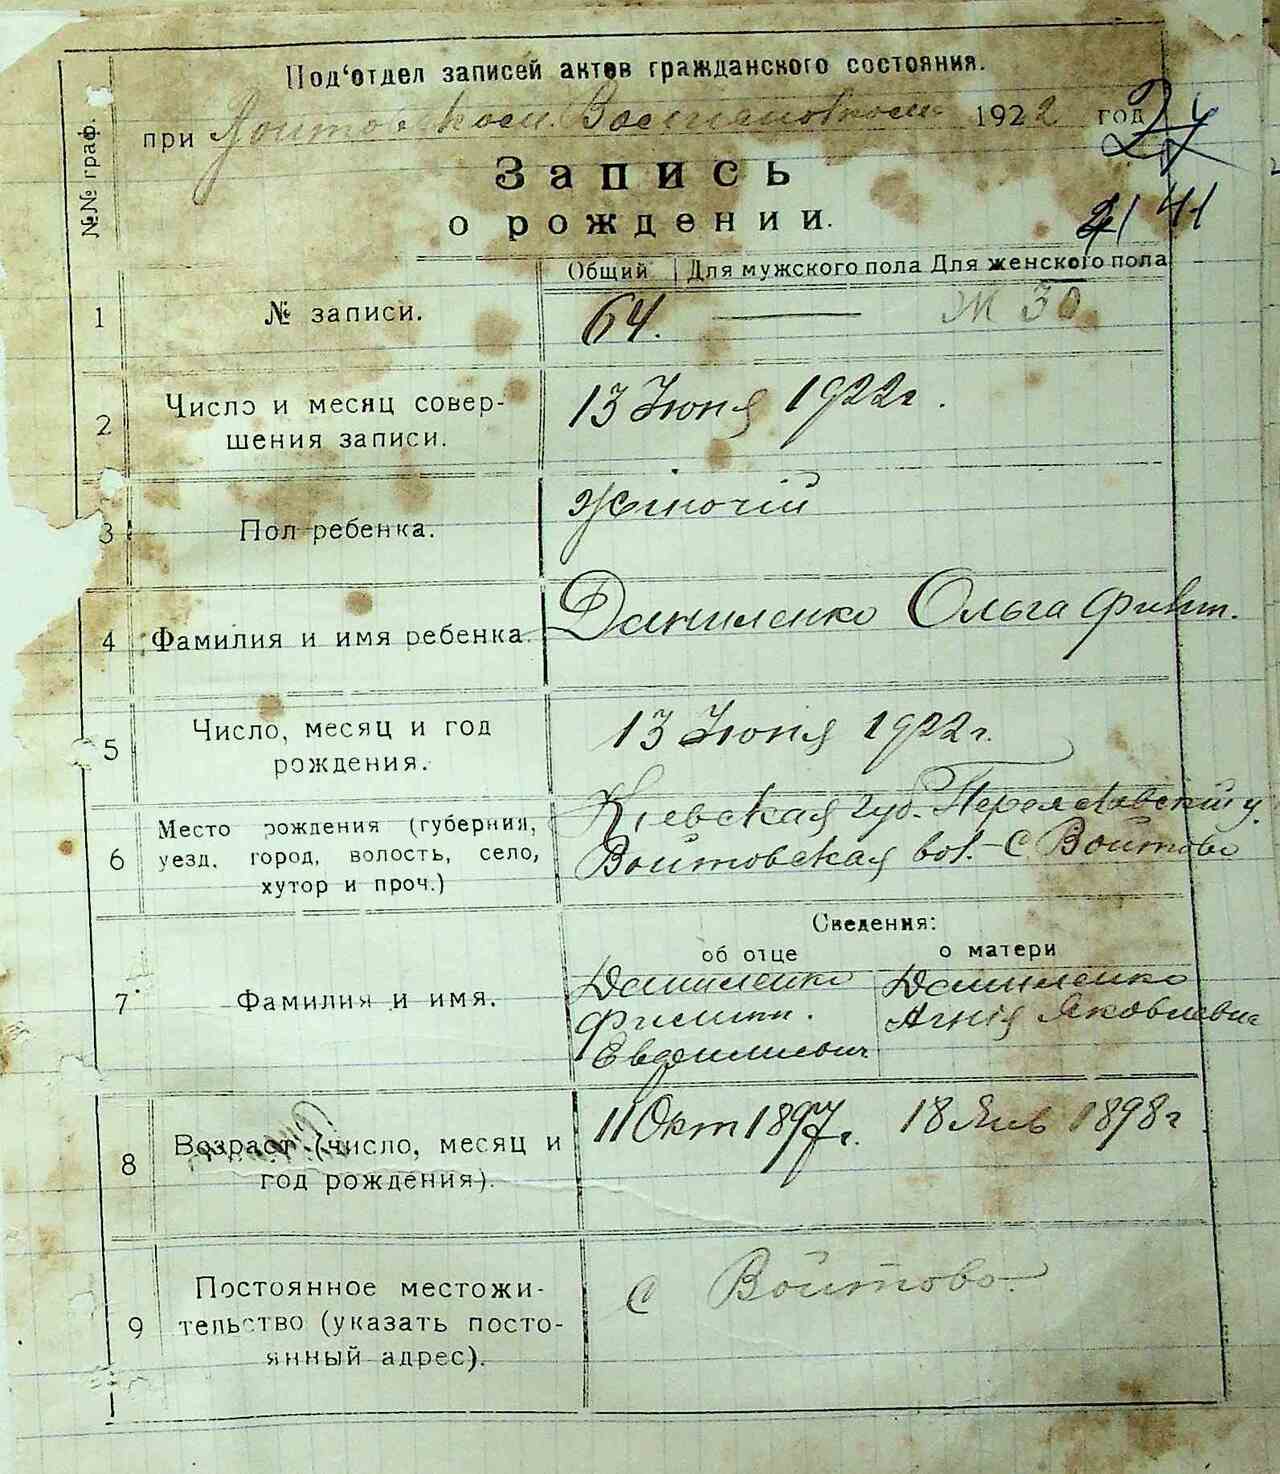 Под‘отдел записей актов гражданского состояния.
при 1922 год
24
Запись
о рождении.
41
№№ граф.
Общий Для мужского пола Для женского пола
1 № записи. 64. — Ж 30
2 Число и месяц совер-
шения записи.
13 Июня 1922 г.
3 Пол ребенка.
Жіночій
4 Фамилия и имя ребенка.
Даниленко Ольга Филип.
5 Число, месяц и год
рождения.
13 Июня 1922 г.
6 Место рождения (губерния,
уезд, город, волость, село,
хутор и проч.)
Киевская губ. Переяславский у.
Войтовская вол. С Войтово
Сведения:
об отце о матери
7 Фамилия и имя.
Даниленко
Филипп.
Даниленко
Агнія Яковлевна
8 Возраст (число, месяц и
год рождения).
11 Окт 1897 г. 18 Янв 1898 г
9 Постоянное местожи-
тельство (указать посто-
янный адрес).
С Войтово